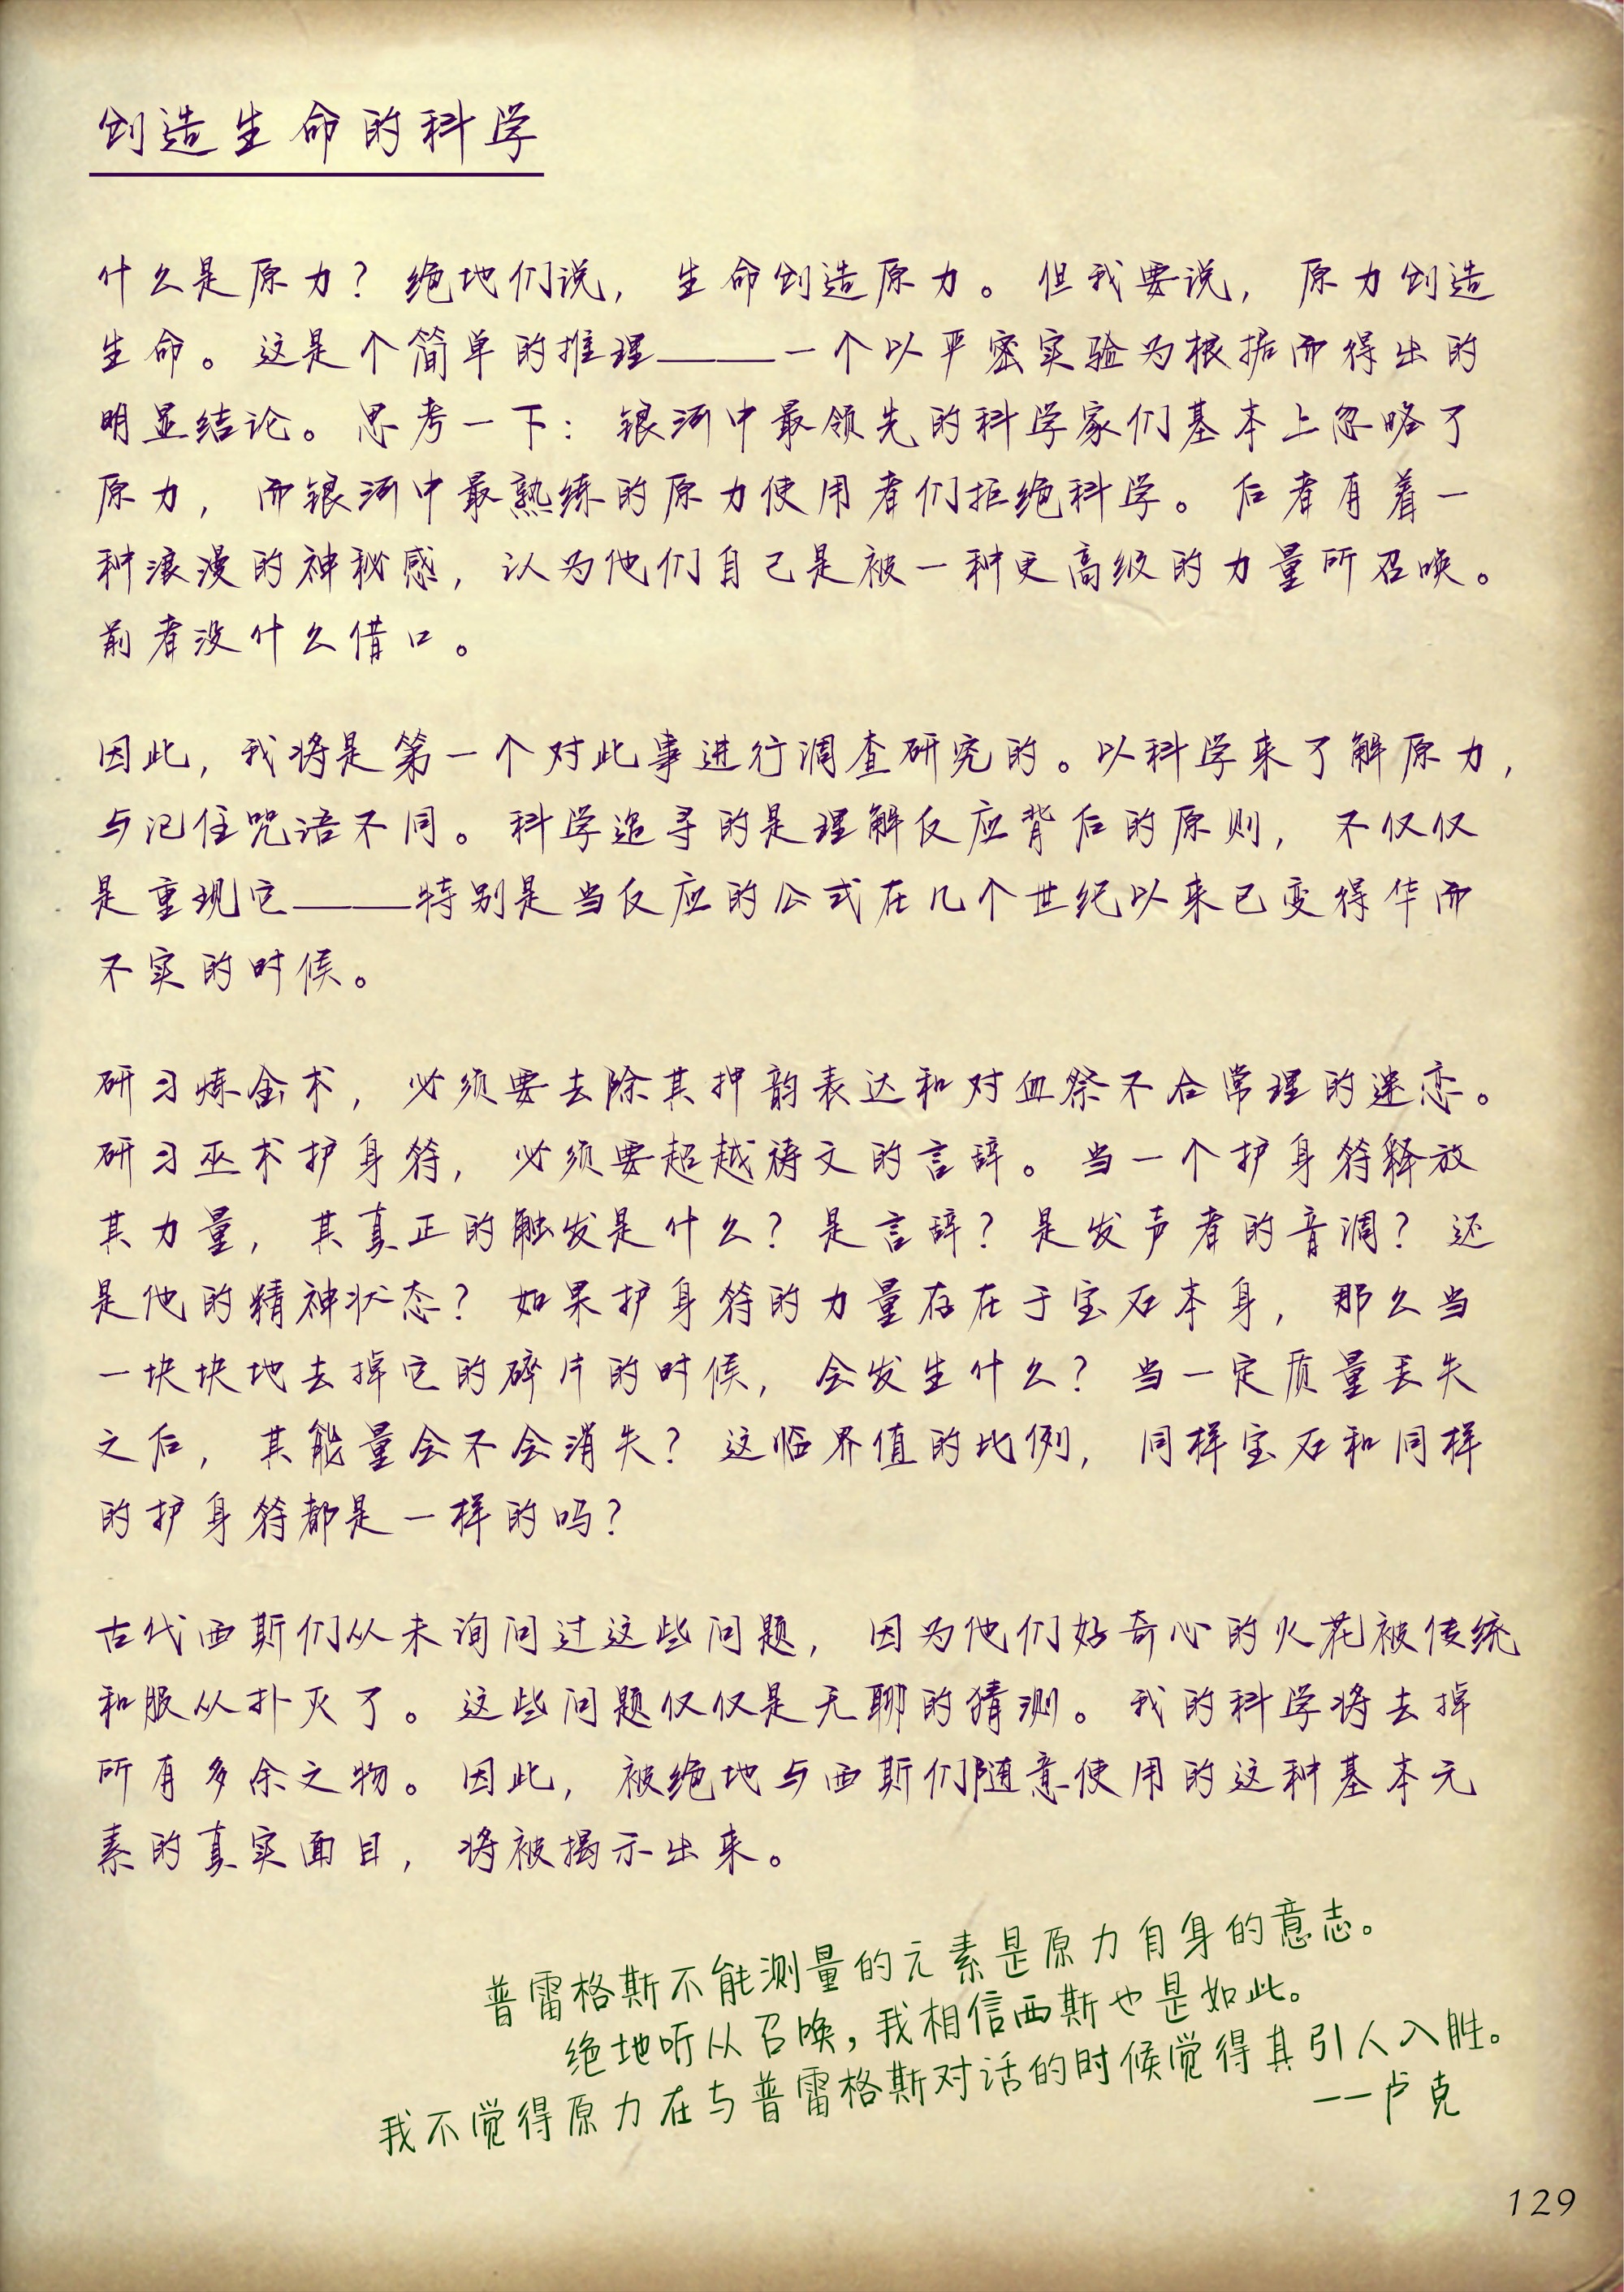 创造生命的科学
什么是原力？绝地们说，生命创造原力。但我要说，原力创造
生命。这是个简单的推理——一个以严密实验为根据而得出的
明显结论。思考一下：银河中最领先的科学家们基本上忽略了
原力，而银河中最熟练的原力使用者们拒绝科学。后者有着一
种浪漫的神秘感，认为他们自己是被一种更高级的力量所召唤。
前者没什么借口。
因此，我将是第一个对此事进行调查研究的。以科学来了解原力，
与记住咒语不同。科学追寻的是理解反应背后的原则，不仅仅
是重现它——特别是当反应的公式在几个世纪以来已变得华而
不实的时候。
研习炼金术，必须要去除其押韵表达和对血祭不合常理的迷恋。
研习巫术护身符，必须要超越祷文的言辞。当一个护身符释放
其力量，其真正的触发是什么？是言辞？是发声者的音调？还
是他的精神状态？如果护身符的力量存在于宝石本身，那么当
一块块地去掉它的碎片的时候，会发生什么？当一定质量丢失
之后，其能量会不会消失？这临界值的比例，同样宝石和同样
的护身符都是一样的吗？
古代西斯们从未询问过这些问题，因为他们好奇心的火花被传统
和服从扑灭了。这些问题仅仅是无聊的猜测。我的科学将去掉
所有多余之物。因此，被绝地与西斯们随意使用的这种基本元
素的真实面目，将被揭示出来。
普雷格斯不能测量的元素是原力自身的意志。
绝地听从召唤，我相信西斯也是如此。
我不觉得原力在与普雷格斯对话的时候觉得其引人入胜。
——卢克
129